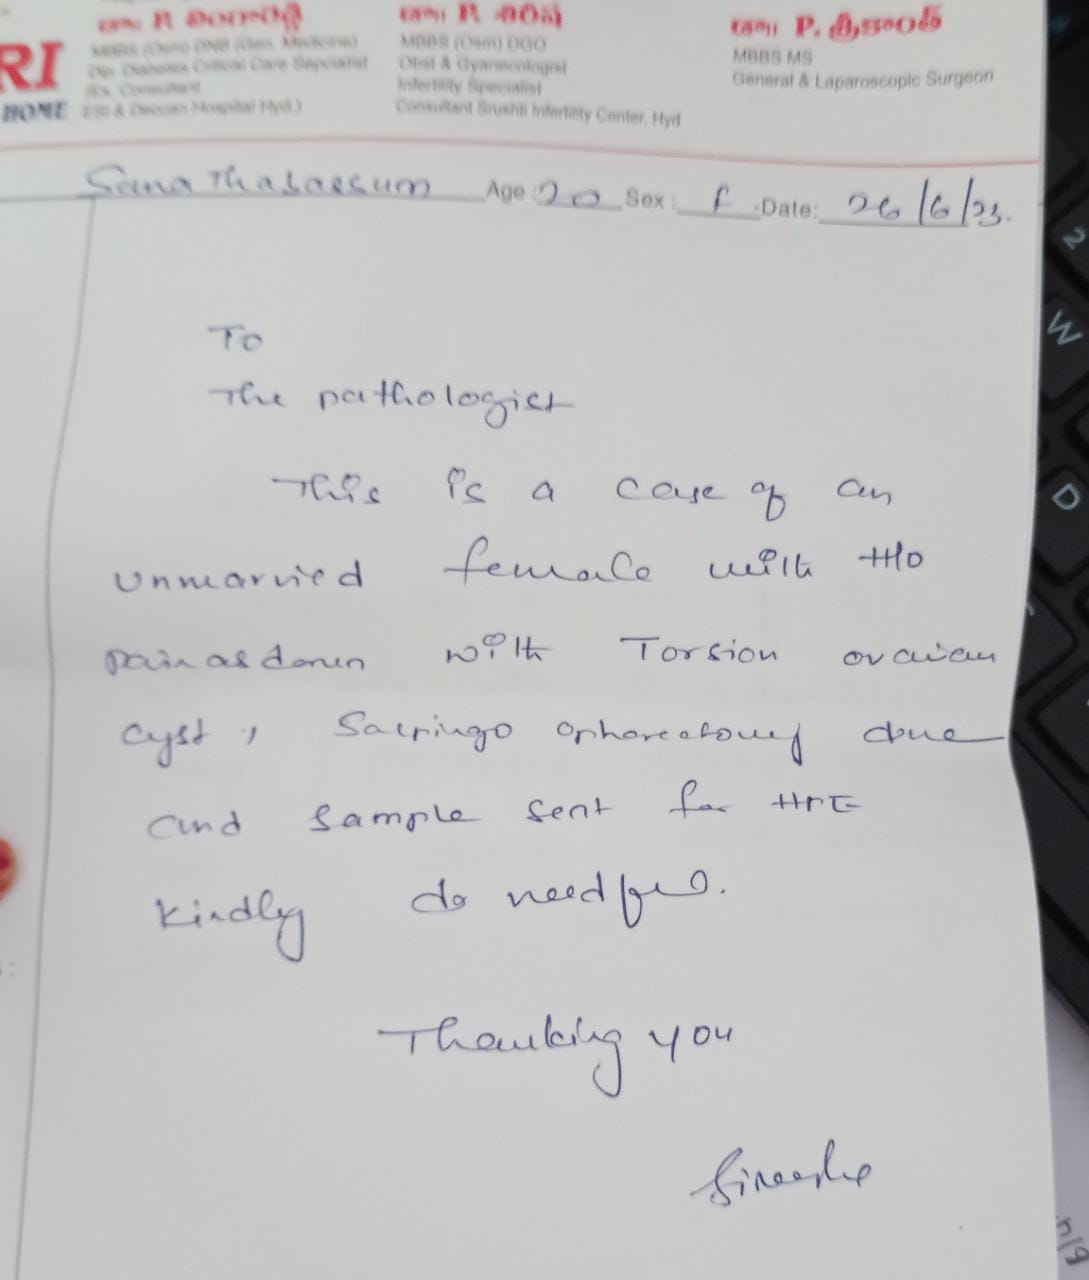 RI
HOME
డా॥ P.
MBBS (Osm) DNB (Gen. Medicine)
Dip. Diabetes Critical Care Sepcialist
(Ex. Consultant
ESI & Deccan Hospital Hyd.)
డా॥ P.
MBBS (Osm) DGO
Obst & Gyanecologist
Infertility Specialist
Consultant Srushti Infertility Center, Hyd
డా॥ P. శ్రీకాంత్
MBBS MS
General & Laparoscopic Surgeon
Sana Thabassum Age : 20 Sex : F Date: 26/6/23.
To
The pathologist
This is a case of an
unmarried female with H/o
pain abdomen with Torsion ovarian
cyst, Salpingo ophorectomy done
and sample sent for HPE
kindly do needful.
Thanking you
2
W
D